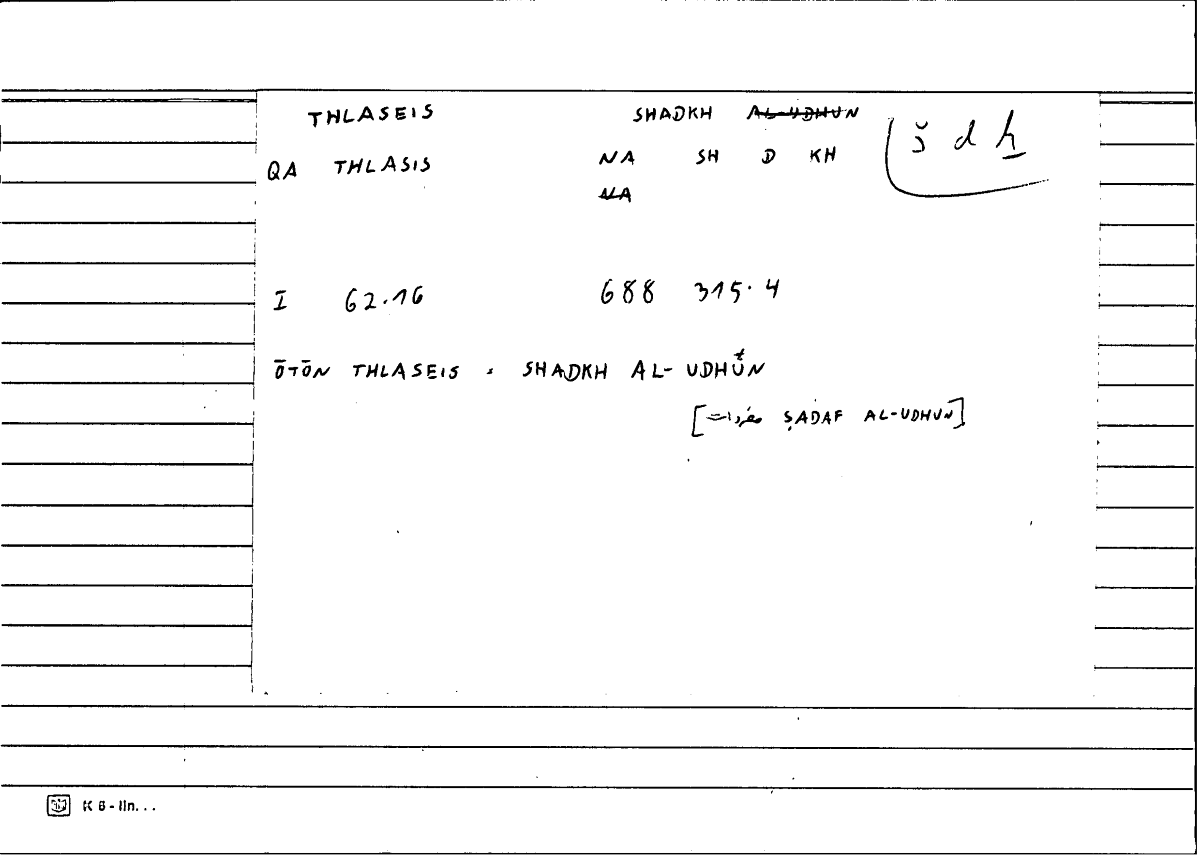 THLASEIS SHADKH AL-UDHUN
QA THLASIS NA SH D KH š d ḫ
NA
I 62.16 688 315.4
ŌTŌN THLASEIS = SHADKH AL-UDHUN
[مفردات ṢADAF AL-UDHUN]
K 6 - lin...